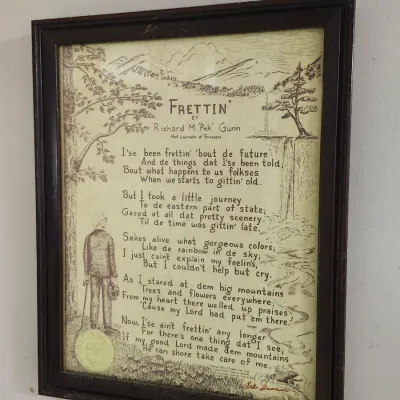 FRETTIN'
BY
Richard M "Pek" Gunn
Poet Laureate of Tennessee
I'se been frettin' 'bout de future
And de things dat I'se been told,
'Bout what happens to us folkses
When we starts to gittin' old.
But I took a little journey
To de eastern part of state;
Gazed at all dat pretty scenery
'Til de time was gittin' late.
Sakes alive what gorgeous colors;
Like de rainbow in de sky;
I just caint explain my feelins,
But I couldn't help but cry.
As I stared at dem big mountains
Trees and flowers everywhere;
From my heart there welled up praises
'Cause my Lord had put 'em there!
Now I'se ain't frettin' any longer
For there's one thing dat I see;
If my good Lord made dem mountains
He can shore take care of me.